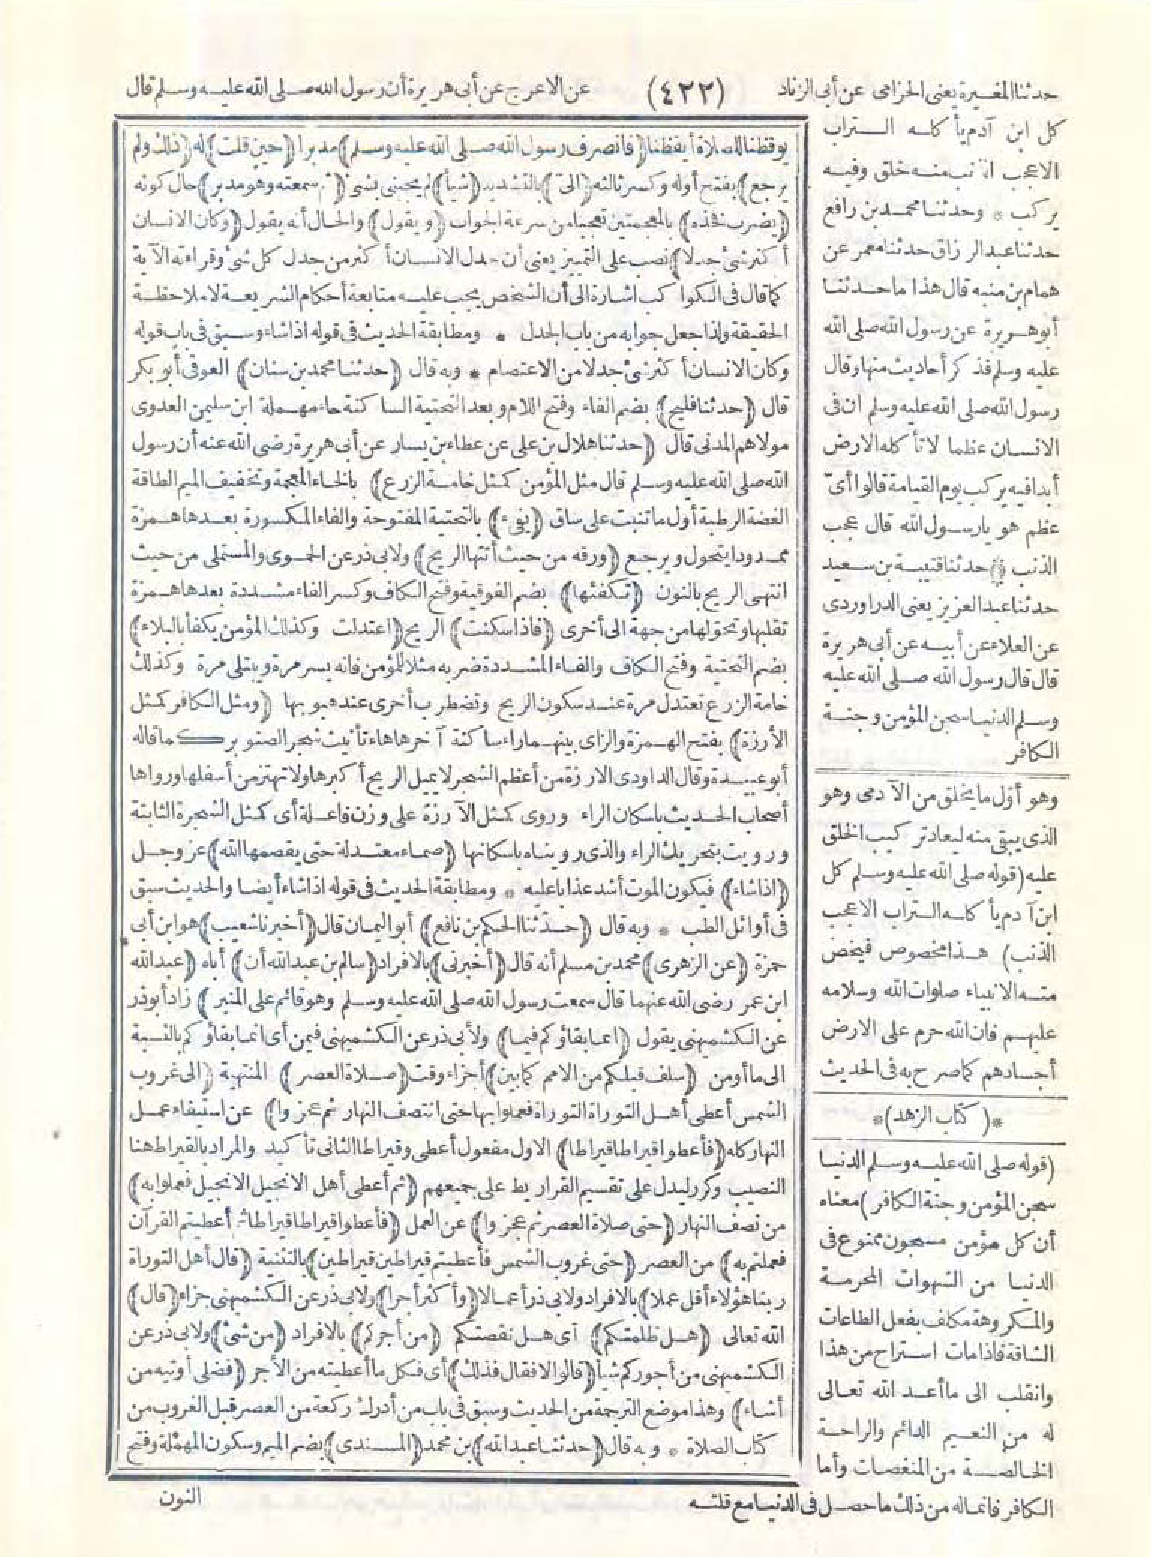 حدثنا المغيرة يعنى الحزامى عن أبى الزناد (٤٢٢) عن الاعرج عن أبى هريرة أن رسول الله صلى الله عليه وسلم قال
كل ابن آدم يأ كله التراب
الاعجب الذنب منه خلق وفيه
يركب * وحدثنا محمد بن رافع
حدثنا عبد الرزاق حدثنا معمر عن
همام بن منبه قال هذا ما حدثنا
أبو هريرة عن رسول الله صلى الله
عليه وسلم فذكر أحاديث منها وقال
رسول الله صلى الله عليه وسلم ان فى
الانسان عظما لا تأ كله الارض
أبدا فيه يركب يوم القيامة قالوا أىّ
عظم هو يا رسول الله قال عجب
الذنب ﴿حدثنا قتيبة بن سعيد
حدثنا عبد العزيز يعنى الدراوردى
عن العلاء عن أبيه عن أبى هريرة
قال قال رسول الله صلى الله عليه
وسلم الدنيا سجن المؤمن وجنة
الكافر
وهو أوّل ما يخلق من الآدمى وهو
الذى يبقى منه ليعاد تركيب الخلق
عليه (قوله صلى الله عليه وسلم كل
ابن آدم يأ كله التراب الاعجب
الذنب) هذا مخصوص فيخص
منه الانبياء صلوات الله وسلامه
عليهم فان الله حرم على الارض
أجسادهم كما صرح به فى الحديث
*(كتاب الزهد)*
(قوله صلى الله عليه وسلم الدنيا
سجن المؤمن وجنة الكافر) معناه
أن كل مؤمن مسجون ممنوع فى
الدنيا من الشهوات المحرمة
والمكروهة مكلف بفعل الطاعات
الشاقة فاذا مات استراح من هذا
وانقلب الى ما أعد الله تعالى
له من النعيم الدائم والراحة
الخالصة من المنغصات وأما
الكافر فانما له من ذلك ما حصل فى الدنيا مع قلته
يوقظنا للصلاة أيقظنا (فانصرف رسول الله صلى الله عليه وسلم) مدبرا (حين قلت) له (ذلك ولم
يرجع) بفتح أوله وكسر ثالثه (الىّ) بالتشديد (شيأ) لم يجبنى بشئ (ثم سمعته وهو مدبر) حال كونه
(يضرب فخذه) بالمعجمتين تعجبا من سرعة الجواب (ويقول) والحال أنه يقول (وكان الانسان
أكثر شئ جدلا) نصب على التمييز يعنى أن جدل الانسان أكثر من جدل كل شئ وقراءته الآية
كما قال فى الكواكب اشارة الى أن الشخص يجب عليه متابعة أحكام الشريعة لا ملاحظة
الحقيقة ولذا جعل جوابه من باب الجدل * ومطابقة الحديث فى قوله اذا شاء وسبق فى باب قوله
وكان الانسان أكثر شئ جدلا من الاعتصام * وبه قال (حدثنا محمد بن سنان) العوقى أبو بكر
قال (حدثنا فليح) بضم الفاء وفتح اللام وبعد التحتية الساكنة حاء مهملة ابن سليمن العدوى
مولاهم المدنى قال (حدثنا هلال بن على عن عطاء بن يسار عن أبى هريرة رضى الله عنه أن رسول
الله صلى الله عليه وسلم قال مثل المؤمن كمثل خامة الزرع) بالخاء المعجمة وتخفيف الميم الطاقة
الغضة الرطبة أول ما تنبت على ساق (يفىء) بالتحتية المفتوحة والفاء المكسورة بعدها همزة
ممدودا يتحول ويرجع (ورقه من حيث أتتها الريح) ولابى ذر عن الحموى والمستملى من حيث
انتهى الريح بالنون (تكفئها) بضم الفوقية وفتح الكاف وكسر الفاء مشددة بعدها همزة
تقلبها وتحولها من جهة الى أخرى (فاذا سكنت) الريح (اعتدلت وكذلك المؤمن يكفأ بالبلاء)
بضم التحتية وفتح الكاف والفاء المشددة ضربه مثلا للمؤمن فانه يسر مرة ويبتلى مرة وكذلك
خامة الزرع تعتدل مرة عند سكون الريح وتضطرب أخرى عند هبوبها (ومثل الكافر كمثل
الأرزة) بفتح الهمزة والزاى بينهما راء ساكنة آخرها هاء تأنيث شجر الصنوبر كما قاله
أبو عبيدة وقال الداودى الارزة من أعظم الشجر لا يميل الريح أكبرها ولا تهتز من أسفلها ورواها
أصحاب الحديث باسكان الراء وروى كمثل الآرزة على وزن فاعلة أى كمثل الشجرة الثابتة
ورويت بتحريك الراء والذى رويناه باسكانها (صماء معتدلة حتى يقصمها الله) عز وجل
(اذا شاء) فيكون الموت أشد عذابا عليه * ومطابقة الحديث فى قوله اذا شاء أيضا والحديث سبق
فى أوائل الطب * وبه قال (حدثنا الحكم بن نافع) أبو اليمان قال (أخبرنا شعيب) هو ابن أبى
حمزة (عن الزهرى) محمد بن مسلم أنه قال (أخبرنى) بالافراد (سالم بن عبد الله أن) أباه (عبد الله
ابن عمر رضى الله عنهما قال سمعت رسول الله صلى الله عليه وسلم وهو قائم على المنبر) زاد أبو ذر
عن الكشميهنى يقول (انما بقاؤكم فيما) ولأبى ذر عن الكشميهنى فيمن أى انما بقاؤكم بالنسبة
الى ما أو من (سلف قبلكم من الامم كما بين) أجزاء وقت (صلاة العصر) المنتهية (الى غروب
الشمس أعطى أهل التوراة التوراة فعملوا بها حتى انتصف النهار ثم عجزوا) عن استيفاء عمل
النهار كله (فأعطوا قيراطا قيراطا) الاول مفعول أعطى وقيراطا الثانى تأكيد والمراد بالقيراط هنا
النصيب وكرر ليدل على تقسيم القراريط على جميعهم (ثم أعطى أهل الانجيل الانجيل فعملوا به)
من نصف النهار (حتى صلاة العصر ثم عجزوا) عن العمل (فأعطوا قيراطا قيراطا ثم أعطيتم القرآن
فعملتم به) من العصر (حتى غروب الشمس فأعطيتم قيراطين قيراطين) بالتثنية (قال أهل التوراة
ربنا هؤلاء أقل عملا) بالافراد ولابى ذر أعمالا (وأكثر أجرا) ولابى ذر عن الكشميهنى جزاء (قال)
الله تعالى (هل ظلمتكم) أى هل نقصتكم (من أجركم) بالافراد (من شئ) ولابى ذر عن
الكشميهنى من أجوركم شيأ (قالوا لا فقال فذلك) أى فكل ما أعطيته من الأجر (فضلى أوتيه من
أشاء) وهذا موضع الترجمة من الحديث وسبق فى باب من أدرك ركعة من العصر قبل الغروب من
كتاب الصلاة * وبه قال (حدثنا عبد الله) بن محمد (المسندى) بضم الميم وسكون المهملة وفتح
النون